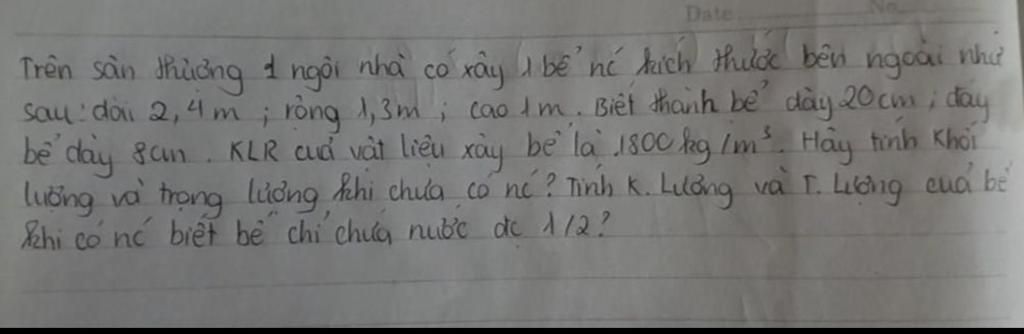 Date No
Trên sân thượng 1 ngôi nhà có xây 1 bể nć kích thước bên ngoài như
sau: dài 2,4m; rộng 1,3m; cao 1m. Biết thành bể dày 20cm; đáy
bể dày 8cm. KLR của vật liệu xây bể là 1800kg/m³. Hãy tính khối
lượng và trọng lượng khi chưa có nć? Tính K. Lượng và T. Lượng cuả bể
khi có nć biết bể chỉ chứa nước đc 1/2?